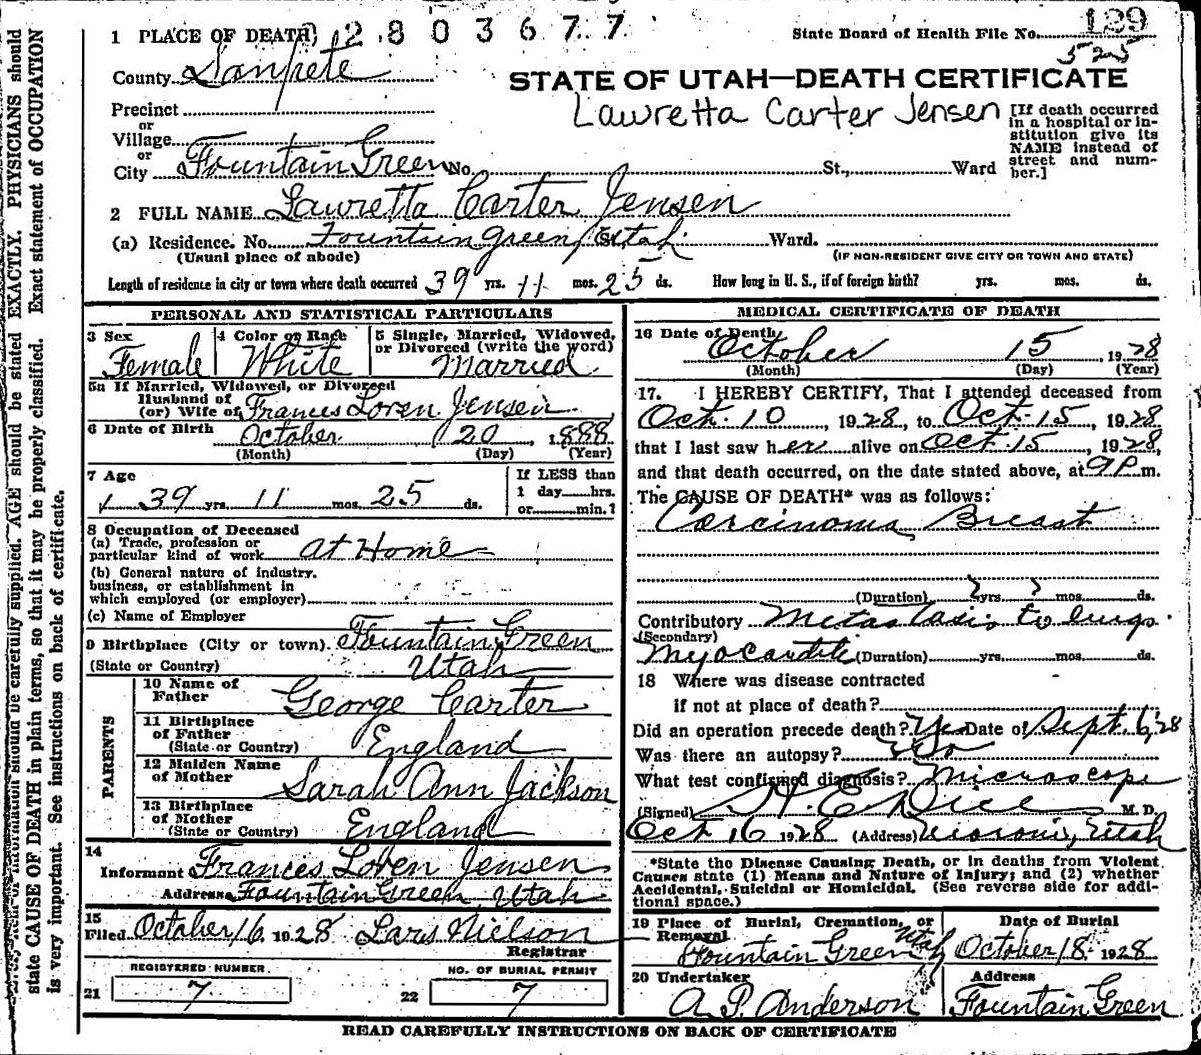 2803677
State Board of Health File No. 129
525
1 PLACE OF DEATH
County Sanpete
STATE OF UTAH—DEATH CERTIFICATE
Lawretta Carter Jensen
[If death occurred in a hospital or in-
stitution give its
NAME instead of
street and num-
ber.]
Precinct
or
Village
or
City Fountain Green No. St., Ward
2 FULL NAME Lawretta Carter Jensen
(a) Residence. No. Fountain Green, Utah St. Ward.
(Usual place of abode) (IF NON-RESIDENT GIVE CITY OR TOWN AND STATE)
Length of residence in city or town where death occurred 39 yrs. 11 mos. 25 ds. How long in U. S., if of foreign birth? yrs. mos. ds.
PERSONAL AND STATISTICAL PARTICULARS
3 Sex Female
4 Color or Race White
5 Single, Married, Widowed, or Divorced (write the word) Married
5a If Married, Widowed, or Divorced
Husband of
(or) Wife of Frances Loren Jensen
6 Date of Birth October 20, 1888
(Month) (Day) (Year)
7 Age 39 yrs. 11 mos. 25 ds.
If LESS than
1 day hrs.
or min.?
8 Occupation of Deceased
(a) Trade, profession or
particular kind of work At Home
(b) General nature of industry.
business, or establishment in
which employed (or employer)
(c) Name of Employer
9 Birthplace (City or town). Fountain Green
(State or Country) Utah
PARENTS
10 Name of
Father George Carter
11 Birthplace
of Father
(State or Country) England
12 Maiden Name
of Mother Sarah Ann Jackson
13 Birthplace
of Mother
(State or Country) England
14
Informant Frances Loren Jensen
Address Fountain Green, Utah
15
Filed October 16 1928 Lars Nielson
Registrar
REGISTERED NUMBER
21 7
NO. OF BURIAL PERMIT
22 7
MEDICAL CERTIFICATE OF DEATH
16 Date of Death October 15, 1928
(Month) (Day) (Year)
17. I HEREBY CERTIFY, That I attended deceased from
Oct. 10, 1928, to Oct. 15, 1928
that I last saw her alive on Oct 15, 1928,
and that death occurred, on the date stated above, at 9 P m.
The CAUSE OF DEATH* was as follows:
Carcinoma Breast
(Duration) ? yrs. ? mos. ds.
Contributory Metastasis to lungs.
(Secondary)
Myocarditis (Duration) yrs. mos. ds.
18 Where was disease contracted
if not at place of death?
Did an operation precede death? Yes Date of Sept. 6, 28
Was there an autopsy? No
What test confirmed diagnosis? Microscope
(Signed) M. D.
Oct 16 1928 (Address) Moroni, Utah
*State the Disease Causing Death, or in deaths from Violent
Causes state (1) Means and Nature of Injury; and (2) whether
Accidental, Suicidal or Homicidal. (See reverse side for addi-
tional space.)
19 Place of Burial, Cremation, or Removal Fountain Green Utah
Date of Burial October 18 1928
20 Undertaker A. P. Anderson
Address Fountain Green
READ CAREFULLY INSTRUCTIONS ON BACK OF CERTIFICATE
information should be carefully supplied. AGE should be stated EXACTLY. PHYSICIANS should
state CAUSE OF DEATH in plain terms, so that it may be properly classified. Exact statement of OCCUPATION
is very important. See instructions on back of certificate.